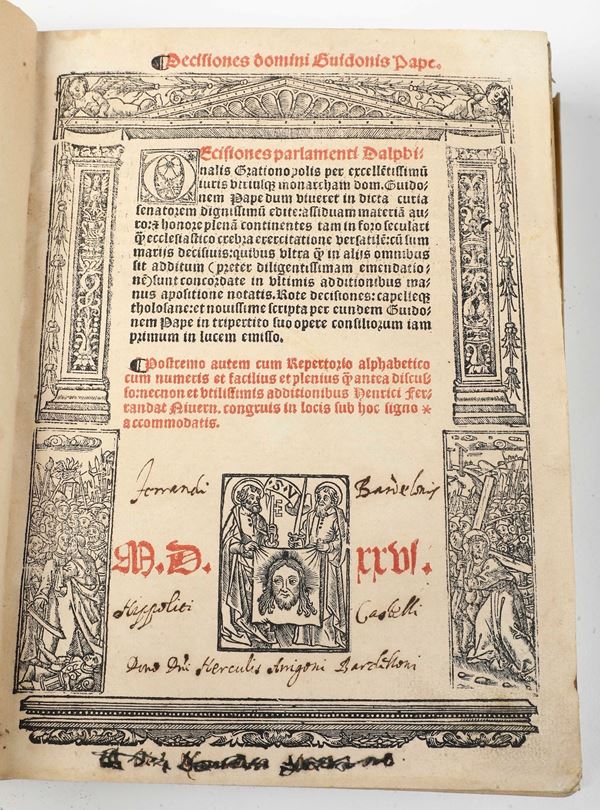 ¶Decisiones domini Guidonis Pape.
DEcisiones parlamenti Dalphi-
nalis Grationopolis per excellẽtissimũ
iuris vtriusqꝫ monarcham dom. Guido-
nem Pape dum viueret in dicta curia
senatorem dignissimũ edite: assiduam materiã au-
ro: & honore plenã continentes tam in foro seculari
q̃ꝫ ecclesiastico crebra exercitatione versatilẽ: cũ sum
mariis decisiuis: quibus vltra q̃ꝫ in alijs omnibus
sit additum (preter diligentissimam emendatio-
nẽ) sunt concordate in vltimis additionibus ma-
nus apositione notatis. Rote decisiones: capelleqꝫ
tholosane: et nouissime scripta per eundem Guido-
nem Pape in tripertito suo opere consiliorum iam
primum in lucem emisso.
¶Postremo autem cum Repertorio alphabetico
cum numeris et facilius et plenius q̃ꝫ antea discus-
so: necnon et vtilissimis additionibus Henrici Fer-
randat Niuern. congruis in locis sub hoc signo *
accommodatis.
S V
M.D. xxvi.
Hippoliti Castelli
Dono Dni Herculis Arrigoni